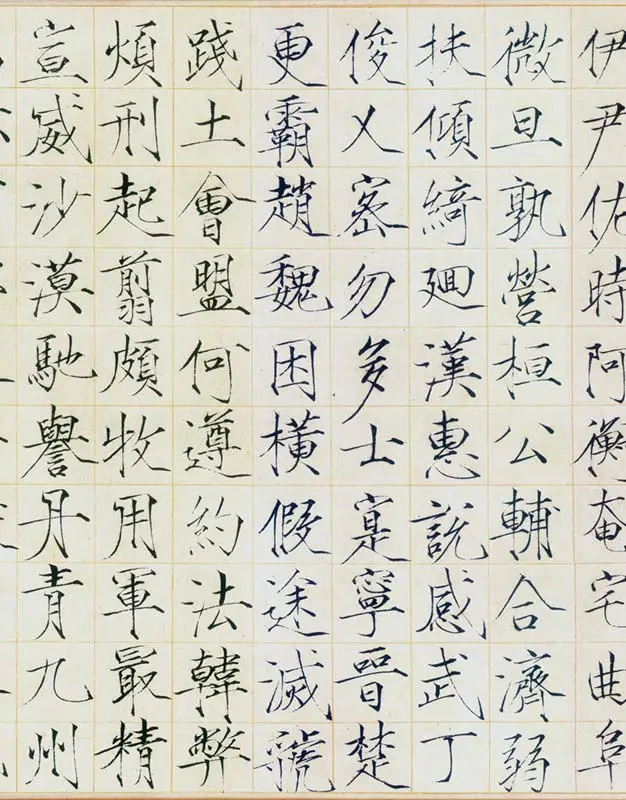 伊尹佐時阿衡奄宅曲阜
微旦孰營桓公輔合濟弱
扶傾綺廻漢惠說感武丁
俊乂密勿多士寔寧晉楚
更霸趙魏困橫假途滅虢
踐土會盟何遵約法韓弊
煩刑起翦頗牧用軍最精
宣威沙漠馳譽丹青九州